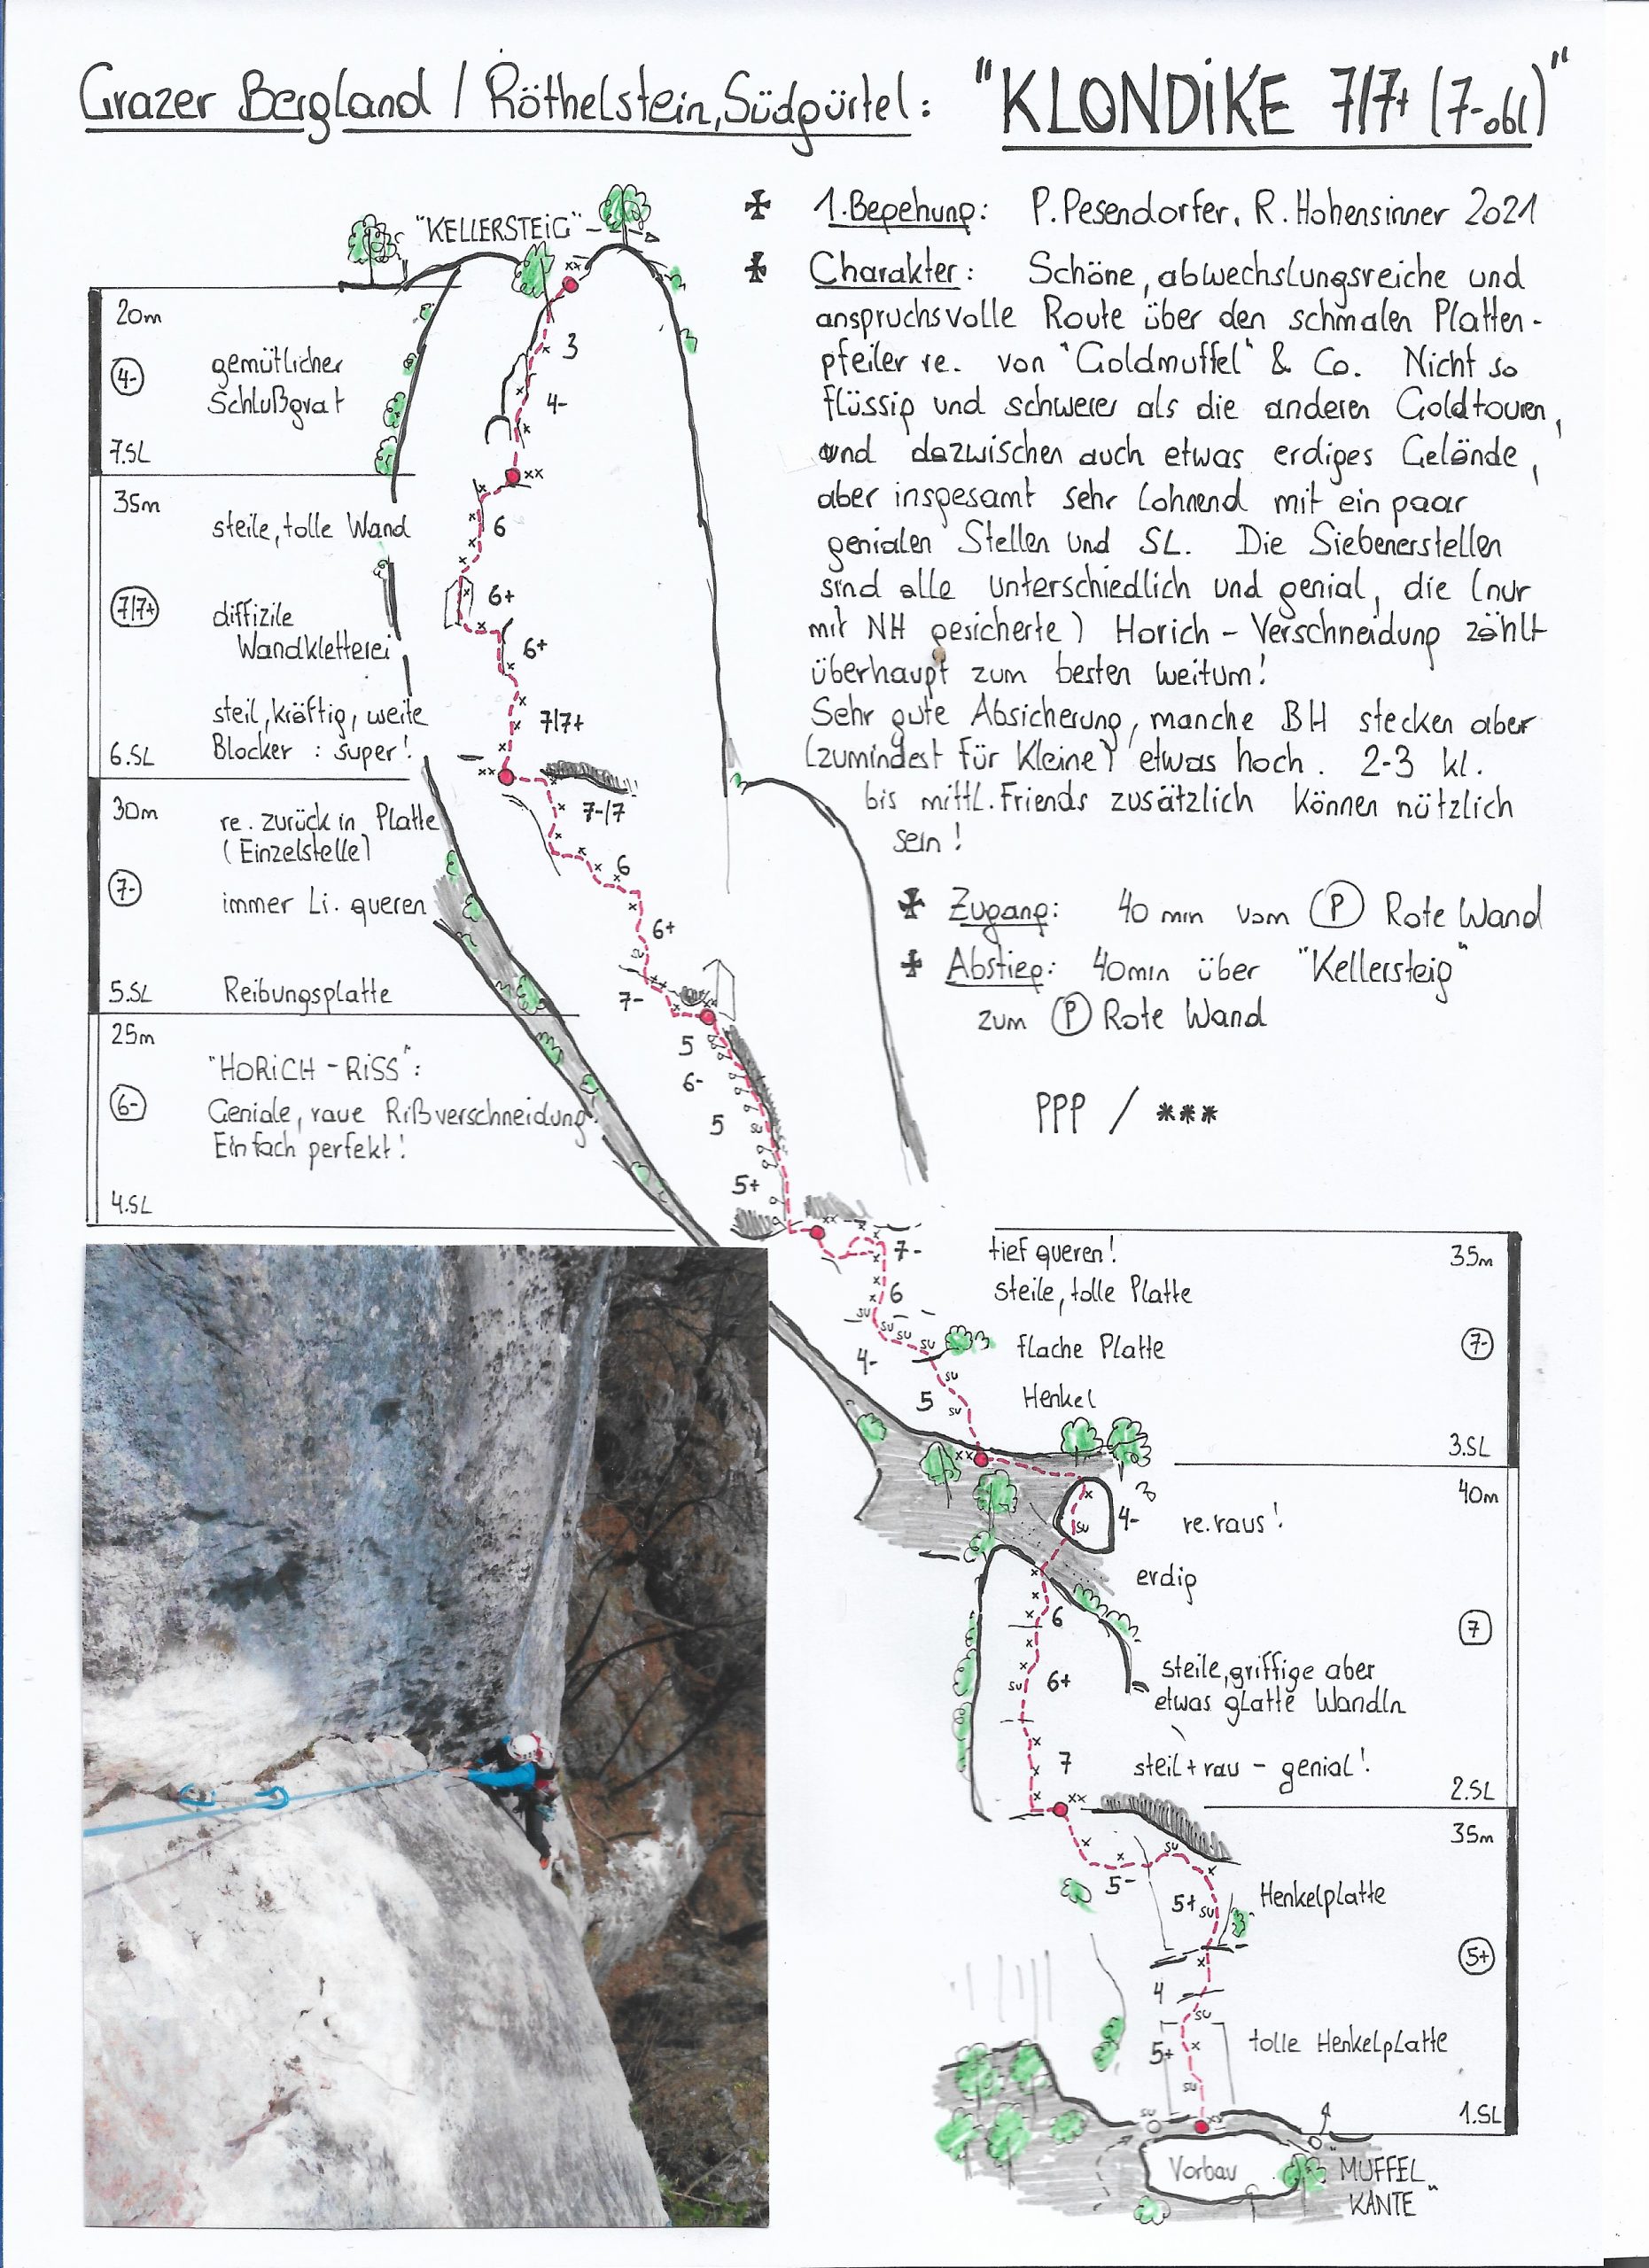 Grazer Bergland / Röthelstein, Südgürtel: "KLONDIKE 7/7+ (7-obl)"
1.Begehung: P. Pesendorfer, R. Hohensinner 2021
Charakter: Schöne, abwechslungsreiche und
anspruchsvolle Route über den schmalen Platten-
pfeiler re. von "Goldmuffel" & Co. Nicht so
flüssig und schwerer als die anderen Goldtouren,
und dazwischen auch etwas erdiges Gelände,
aber insgesamt sehr lohnend mit ein paar
genialen Stellen und SL. Die Siebenerstellen
sind alle unterschiedlich und genial, die (nur
mit NH gesicherte) Horich-Verschneidung zählt
überhaupt zum besten weitum!
Sehr gute Absicherung, manche BH stecken aber
(zumindest für Kleine) etwas hoch. 2-3 kl.
bis mittl. Friends zusätzlich können nützlich
sein!
Zugang: 40 min vom P Rote Wand
Abstieg: 40min über "Kellersteig"
zum P Rote Wand
PPP / ***
"KELLERSTEIG"
xx
20m
3
4-
gemütlicher
Schlußgrat
4-
7.SL
xx
35m
steile, tolle Wand
6
6+
7/7+
diffizile
Wandkletterei
6+
steil, kräftig, weite
7/7+
Blocker: super!
6.SL
xx
30m
7-/7
re. zurück in Platte
(Einzelstelle)
6
7-
immer Li. queren
6+
5.SL
Reibungsplatte
7-
xx
25m
5
"HORICH-RISS":
6-
6-
Geniale, raue Rißverschneidung
5
Einfach perfekt!
5+
4.SL
xx
7-
tief queren!
35m
6
steile, tolle Platte
su
su su su
4-
flache Platte
7-
su
5
Henkel
su
xx
3.SL
40m
3
su
4-
re. raus!
erdig
6
7
su
6+
steile, griffige aber
etwas glatte Wandln
7
steil + rau - genial!
2.SL
xx
35m
su
5-
5+
su
Henkelplatte
5+
4
su
5+
tolle Henkelplatte
su
su
xx
1.SL
Vorbau
"MUFFEL
KANTE"